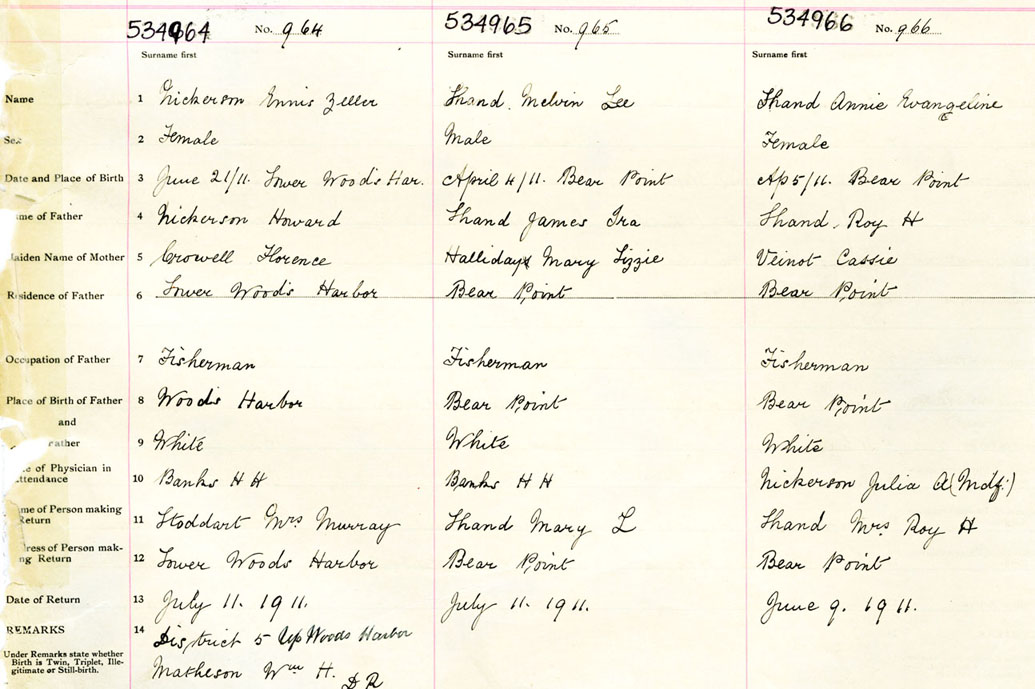 534964 No. 964 534965 No. 965 534966 No. 966
Surname first Surname first Surname first
Name 1 Nickerson Ennis Zeller Shand Melvin Lee Shand Annie Evangeline
Sex 2 Female Male Female
Date and Place of Birth 3 June 21/11. Lower Wood's Har. April 4/11. Bear Point Ap 5/11. Bear Point
me of Father 4 Nickerson Howard Shand James Ira Shand Roy H
Maiden Name of Mother 5 Crowell Florence Halliday Mary Lizzie Veinot Cassie
Residence of Father 6 Lower Wood's Harbor Bear Point Bear Point
Occupation of Father 7 Fisherman Fisherman Fisherman
Place of Birth of Father 8 Wood's Harbor Bear Point Bear Point
and
ather 9 White White White
e of Physician in
ttendance 10 Banks H H Banks H H Nickerson Julia A (Mdf.)
me of Person making
Return 11 Stoddart Mrs Murray Shand Mary L Shand Mrs. Roy H
ress of Person mak-
ng Return 12 Lower Woods Harbor Bear Point Bear Point
Date of Return 13 July 11. 1911. July 11. 1911. June 9. 1911.
REMARKS 14 District 5 Up Woods Harbor
Under Remarks state whether
Birth is Twin, Triplet, Ille-
gitimate or Still-birth.
Matheson Wm H. D R